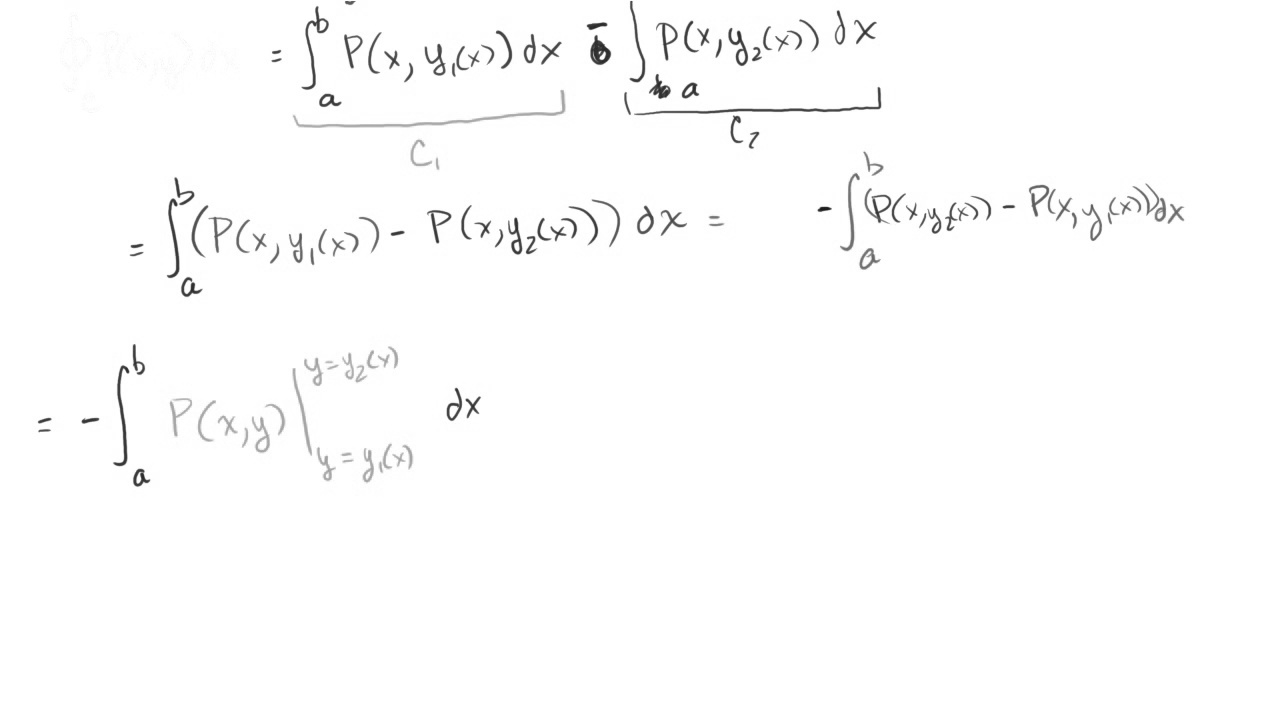 = ∫_a^b P(x, y₁(x)) dx - ∫_a P(x, y₂(x)) dx
C₁ C₂
= ∫_a^b (P(x, y₁(x)) - P(x, y₂(x))) dx = - ∫_a^b (P(x, y₂(x)) - P(x, y₁(x))) dx
= - ∫_a^b P(x, y) |_{y = y₁(x)}^{y = y₂(x)} dx